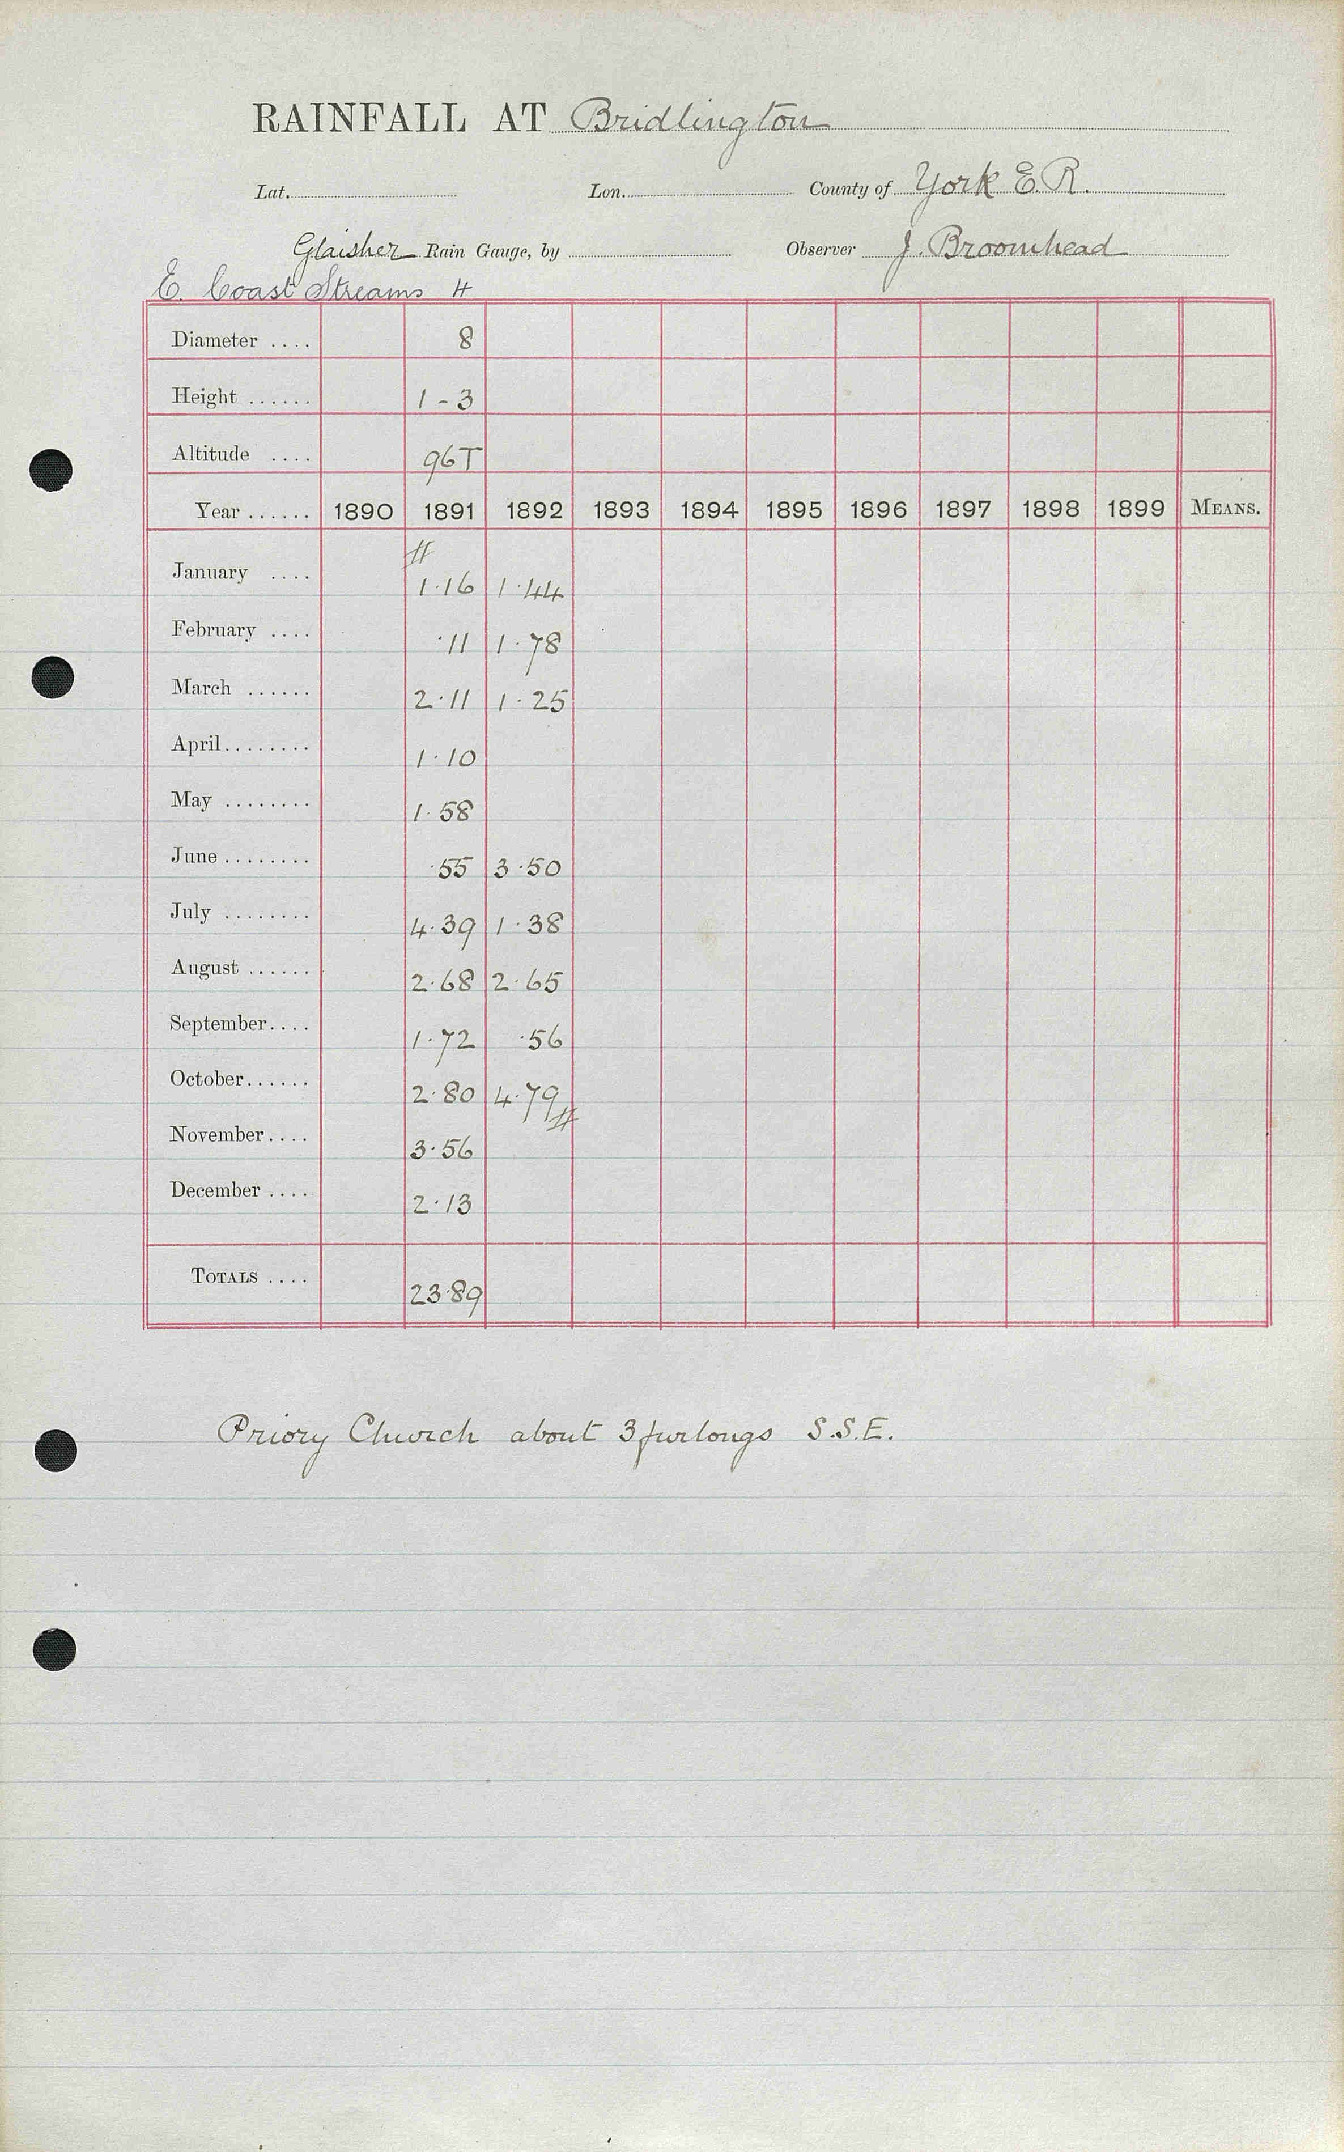 RAINFALL AT Bridlington
Lat. Lon. County of York E.R.
Glaisher Rain Gauge, by Observer J. Broomhead
E. Coast Streams 4
Diameter .... 8
Height ...... 1-3
Altitude .... 96T
Year ...... 1890 1891 1892 1893 1894 1895 1896 1897 1898 1899 MEANS.
#
January .... 1.16 1.44
February .... .11 1.78
March ...... 2.11 1.25
April........ 1.10
May ........ 1.58
June ........ .55 3.50
July ........ 4.39 1.38
August ...... 2.68 2.65
September.... 1.72 .56
October...... 2.80 4.79 #
November.... 3.56
December .... 2.13
TOTALS .... 23.89
Priory Church about 3 furlongs S.S.E.